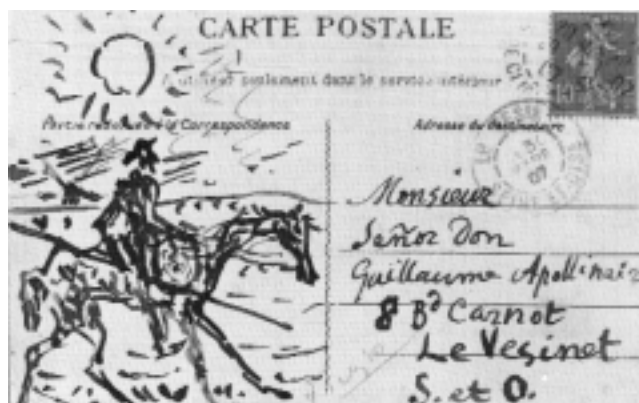 CARTE POSTALE
seulement dans le service intérieur
Correspondance
Adresse du Destinataire
Monsieur
Señor Don
Guillaume Apollinaire
8 Bd Carnot
Le Vesinet
S. et O.